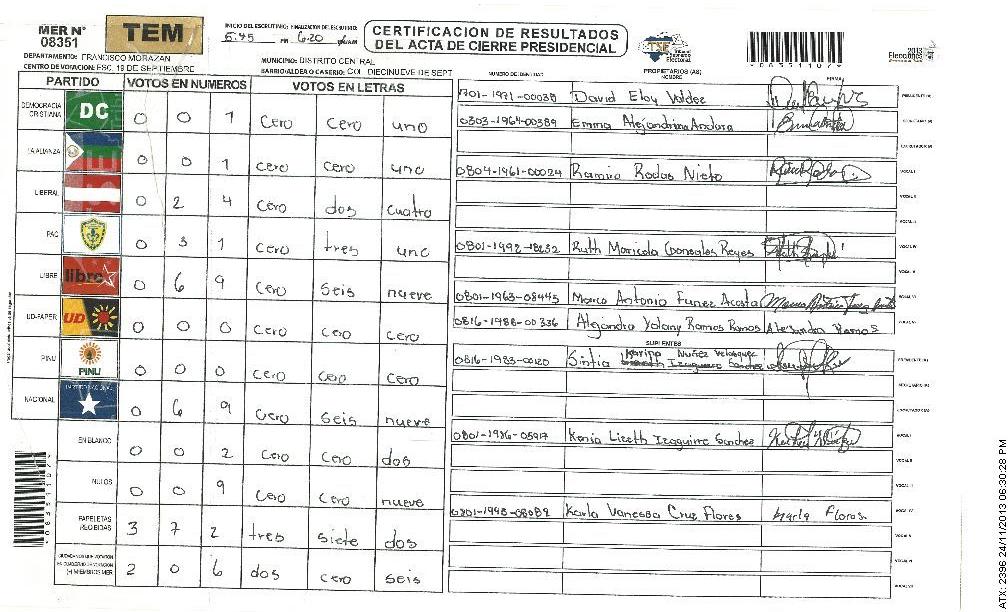 MER N° 08351
TEM
INICIO DEL ESCRUTINIO: FINALIZACION DEL ESCRUTINIO:
5:45 pm 6:20
CERTIFICACIÓN DE RESULTADOS DEL ACTA DE CIERRE PRESIDENCIAL
TSE Tribunal Supremo Electoral
2013 Elecciones
DEPARTAMENTO: FRANCISCO MORAZAN
MUNICIPIO: DISTRITO CENTRAL
CENTRO DE VOTACION: ESC. 19 DE SEPTIEMBRE
BARRIO/ALDEA O CASERIO: COL DIECINUEVE DE SEPT
PARTIDO VOTOS EN NUMEROS VOTOS EN LETRAS
DEMOCRACIA CRISTIANA DC 0 0 1 Cero Cero uno
LA ALIANZA 0 0 1 cero cero uno
LIBERAL 0 2 4 Cero dos cuatro
PAC 0 3 1 Cero tres uno
LIBRE libre 0 6 9 Cero seis nueve
UD-FAPER UD 0 0 0 Cero Cero Cero
PINU PINU 0 0 0 Cero Cero Cero
NACIONAL PARTIDO NACIONAL 0 6 9 Cero seis nueve
EN BLANCO 0 0 2 Cero Cero dos
NULOS 0 0 9 Cero Cero nueve
PAPELETAS RECIBIDAS 3 7 2 tres siete dos
CIUDADANOS QUE VOTARON 2 0 6 dos cero seis
NUMERO DE IDENTIDAD PROPIETARIOS (AS) NOMBRE FIRMA
1701-1971-00038 David Eloy Valdez PRESIDENTE (A)
0303-1964-00389 Emma Alejandrina Andara SECRETARIO (A)
ESCRUTADOR (A)
0804-1961-00024 Ramiro Rodas Nieto VOCAL I
VOCAL II
VOCAL III
0801-1992-18232 Ruth Maricela Gonsales Reyes VOCAL IV
VOCAL V
0801-1963-08445 Marco Antonio Funez Acosta VOCAL VI
0816-1988-00336 Alejandra Yolany Ramos Ramos Alejandra Ramos
SUPLENTES
0816-1983-00120 Sintia Karina Nuñez Velasquez PRESIDENTE (A)
Izaguirre Sanchez
SECRETARIO (A)
ESCRUTADOR (A)
0801-1986-05917 Kenia Lizeth Izaguirre Sanchez VOCAL I
VOCAL II
VOCAL III
Karla Vanessa Cruz Flores Karla Flores VOCAL IV
VOCAL V
VOCAL VI
VOCAL VII
ATX: 2396 24/11/2013 06:30:28 PM